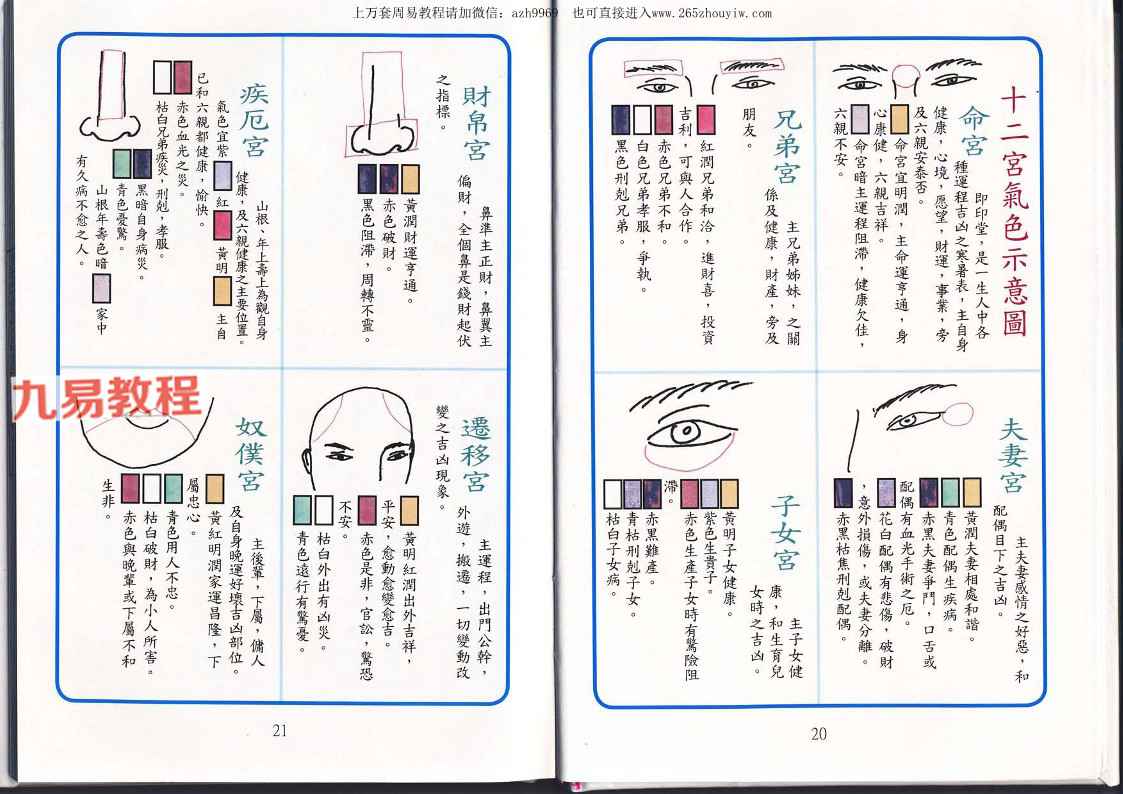 上万套周易教程请加微信：azh9969　也可直接进入www.265zhouyiw.com
十二宮氣色示意圖
命宮
即印堂，是一生人中各
種運程吉凶之寒暑表，主自身
健康，心境，愿望，財運，事業，旁
及六親安泰否。
命宮宜明潤，主命運亨通，身
心康健，六親吉祥。
命宮暗主運程阻滯，健康欠佳，
六親不安。
兄弟宮
主兄弟姊妹，之關
係及健康，財產，旁及
朋友。
紅潤兄弟和洽，進財喜，投資
吉利，可與人合作。
赤色兄弟不和。
白色兄弟孝服，爭執。
黑色刑剋兄弟。
夫妻宮
主夫妻感情之好惡，和
配偶目下之吉凶。
黃潤夫妻相處和諧。
青色配偶生疾病。
赤黑夫妻爭鬥，口舌或
配偶有血光手術之厄。
花白配偶有悲傷，破財
，意外損傷，或夫妻分離。
赤黑枯焦刑剋配偶。
子女宮
主子女健
康，和生育兒
女時之吉凶。
黃明子女健康。
紫色生貴子。
赤色生產子女時有驚險阻
滯。
赤黑難產。
青枯刑剋子女。
枯白子女病。
20
財帛宮
鼻準主正財，鼻翼主
偏財，全個鼻是錢財起伏
之指標。
黃潤財運亨通。
赤色破財。
黑色阻滯，周轉不靈。
疾厄宮
山根、年上壽上為觀自身
健康，及六親健康之主要位置。
氣色宜紫 紅 黃明 主自
已和六親都健康，愉快。
赤色血光之災。
枯白兄弟疾災，刑剋，孝服。
黑暗自身病災。
青色憂驚。
山根年壽色暗 家中
有久病不愈之人。
遷移宮
主運程，出門公幹，
外遊，搬遷，一切變動改
變之吉凶現象。
黃明紅潤出外吉祥，
平安，愈動愈變愈吉。
赤色是非，官訟，驚恐
不安。
枯白外出有凶災。
青色遠行有驚憂。
奴僕宮
主後輩，下屬，傭人
及自身晚運好壞吉凶部位。
黃紅明潤家運昌隆，下
屬忠心。
青色用人不忠。
枯白破財，為小人所害。
赤色與晚輩或下屬不和
生非。
21
九易教程